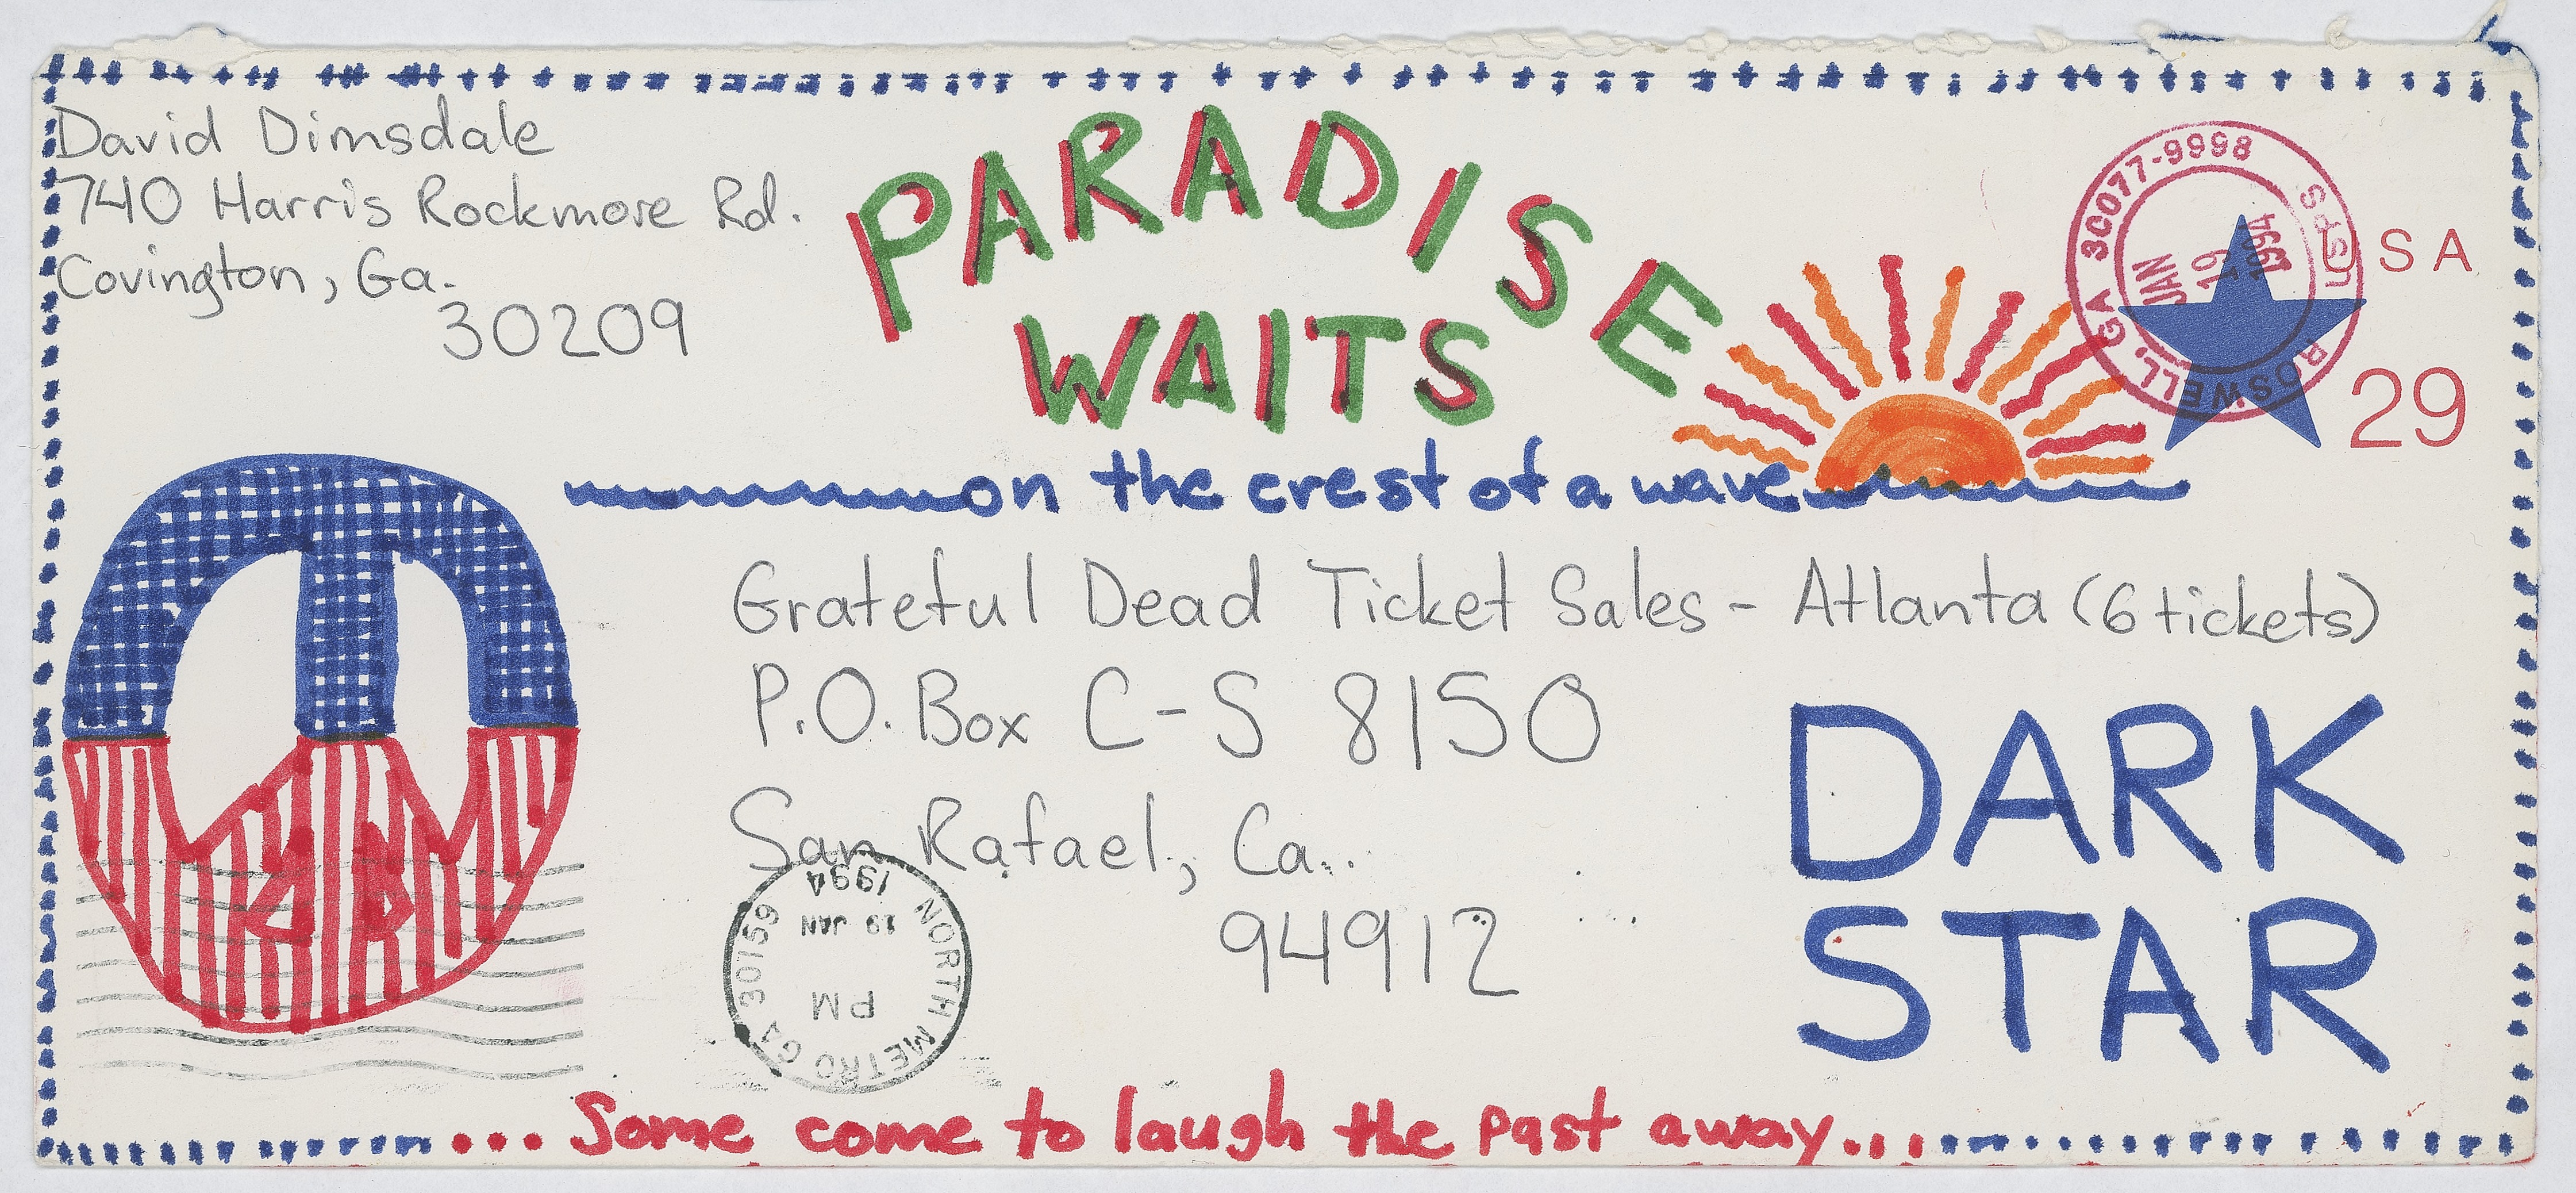 David Dimsdale
740 Harris Rockmore Rd.
Covington, Ga.
30209
PARADISE
WAITS
on the crest of a wave
USA
29
ROSWELL, GA 30077-9998
USPS
JAN
19
1994
Grateful Dead Ticket Sales - Atlanta (6 tickets)
P.O. Box C-S 8150
San Rafael, Ca.
94912
DARK
STAR
NORTH METRO GA 30159
PM
19 JAN
1994
... Some come to laugh the past away...